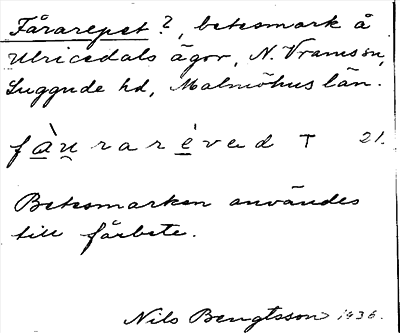 Fårarepet?, betesmark å
Ulricedals ägor, N. Vramsn,
Luggude hd, Malmöhus län.
fàu̯rarèved T 21.
Betesmarken användes
till fårbete.
Nils Bengtsson 1936.